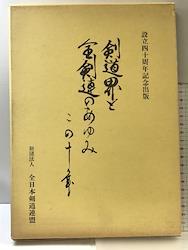 設立四十周年記念出版
剣道界と
全剣連のあゆみ
この十年
財団法人 全日本剣道連盟